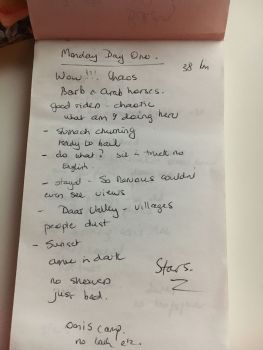 Monday Day One.
38 km
Wow!!! Chaos
Barb & Arab horses.
good riders - chaotic
what am I doing here
- stomach churning
ready to bail
- do what? sit in truck no
English.
- stayed - so nervous couldn't
even see views
- Daas Valley - villages
people dust
- Sunset
arrive in dark
Stars.
no showers
just bed.
Oasis camp.
no lady etc.